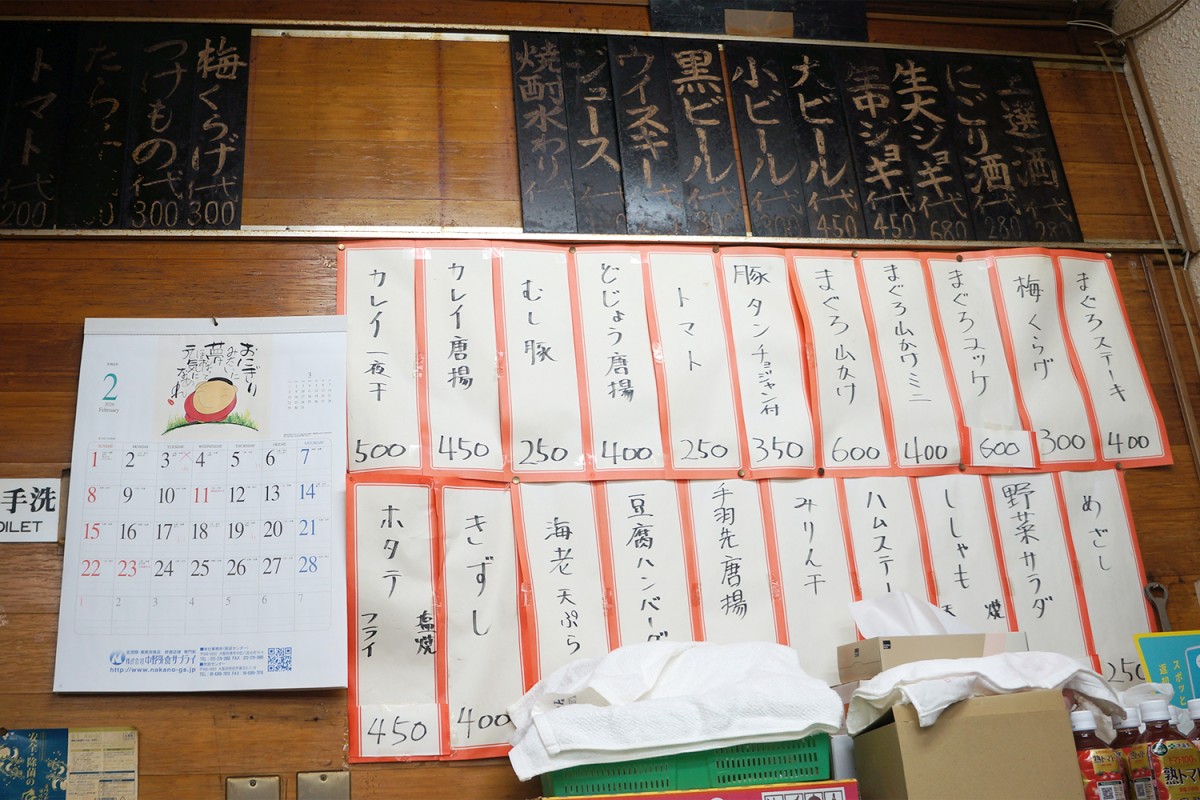 上選酒 280
にごり酒代 280
生大ジョキ代 680
生中ジョキ代 450
大ビール代 450
小ビール代
黒ビール代
ウイスキー代
ジュース代
焼酎水わり代
梅くらげ代 300
つけもの代 300
トマト代 200
まぐろステーキ 400
梅くらげ 300
まぐろユッケ 600
まぐろ山かけミニ 400
まぐろ山かけ 600
豚タンチョジャン付 350
トマト 250
どじょう唐揚 400
むし豚 250
カレイ唐揚 450
カレイ一夜干 500
めざし 250
野菜サラダ
ししゃも 天 焼
ハムステー
みりん干
手羽先唐揚
豆腐ハンバーグ
海老天ぷら
きずし 400
ホタテ 塩焼 フライ 450
2
February
おにぎり
みたいに
夢
元気に
なあれ
3
1 2 3 4 5 6 7
8 9 10 11 12 13 14
15 16 17 18 19 20 21
22 23 24 25 26 27 28
1 2 3 4 5 6 7
株式会社中野外食サプライ
http://www.nakano-ga.jp
手洗
OILET
安全・除菌の
スポッと
熟トマ